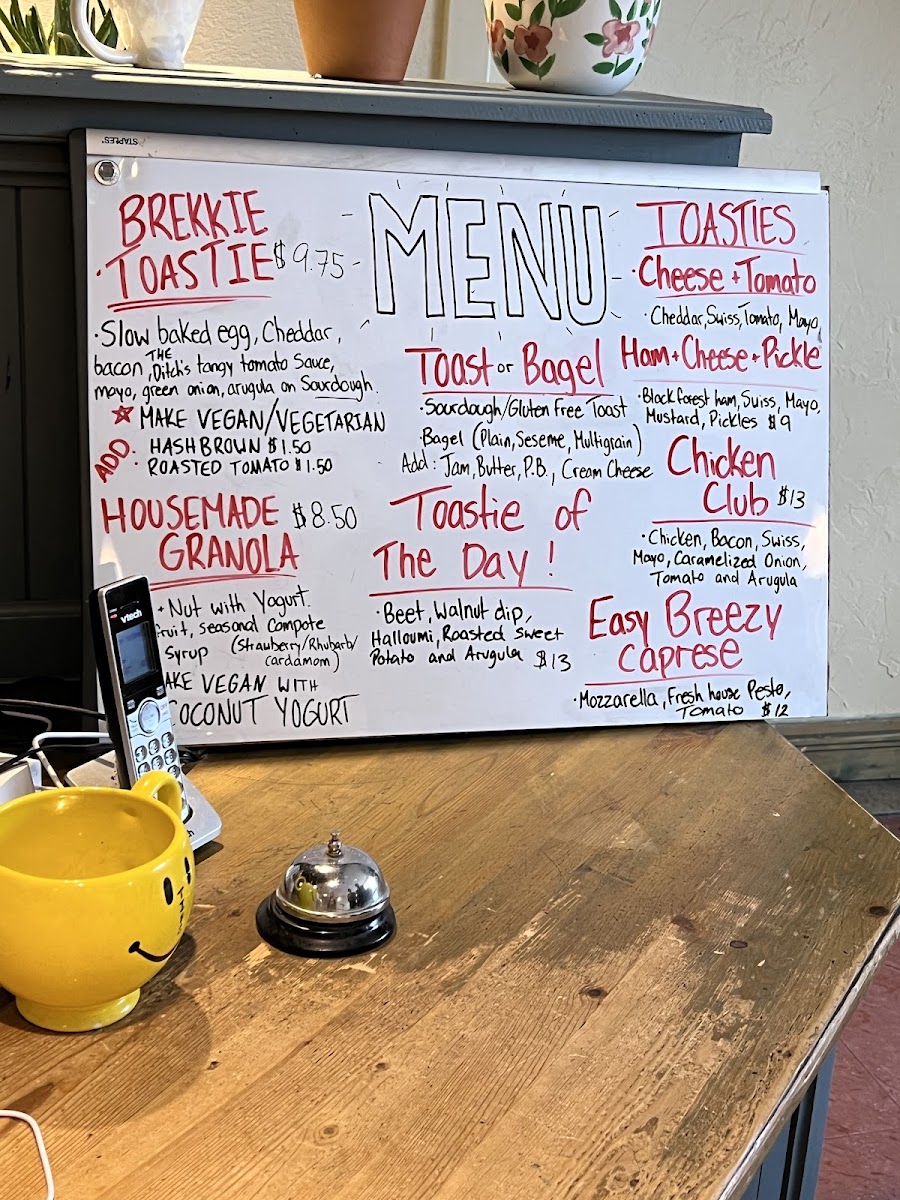 STAPLES
BREKKIE
·TOASTIE $9.75
·Slow baked egg, Cheddar,
bacon, THE Ditch's tangy tomato Sauce,
mayo, green onion, arugula on Sourdough.
☆ MAKE VEGAN/VEGETARIAN
ADD· HASHBROWN $1.50
· ROASTED TOMATO $1.50
HOUSEMADE $8.50
GRANOLA
+ Nut with Yogurt.
fruit, seasonal compote
Syrup (Strawberry/Rhubarb/
cardamom)
AKE VEGAN WITH
COCONUT YOGURT
MENU
Toast or Bagel
·Sourdough/Gluten Free Toast
·Bagel (Plain, Seseme, Multigrain)
Add: Jam, Butter, P.B., Cream Cheese
Toastie of
The Day!
·Beet, Walnut dip,
Halloumi, Roasted Sweet
Potato and Arugula $13
TOASTIES
·Cheese + Tomato
·Cheddar, Swiss, Tomato, Mayo,
Ham + Cheese + Pickle
·Black forest ham, Swiss, Mayo,
Mustard, Pickles $9
Chicken
Club $13
·Chicken, Bacon, Swiss,
Mayo, Caramelized Onion,
Tomato and Arugula
Easy Breezy
Caprese
·Mozzarella, Fresh house Pesto,
Tomato $12
vtech